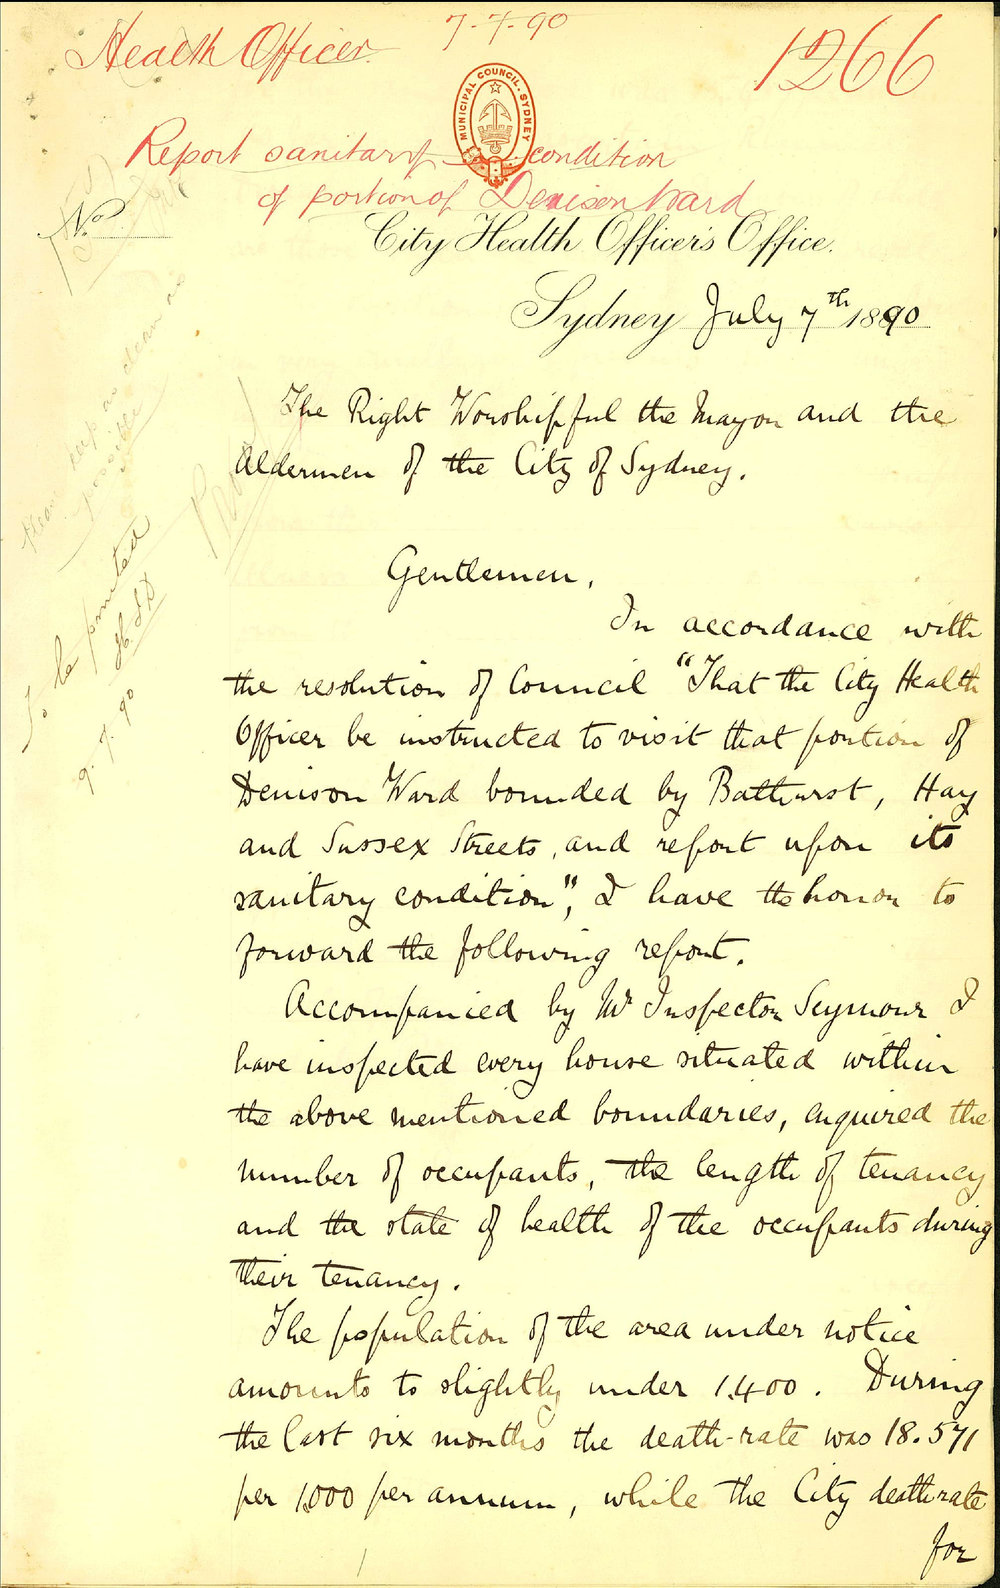 7-7-90
Health Officer
1266
MUNICIPAL COUNCIL. SYDNEY
Report sanitary condition
of portion of Denison Ward
No
City Health Officer's Office.
Sydney July 7th 1890
The Right Worshipful the Mayor and the
Aldermen of the City of Sydney.
Gentlemen,
In accordance with
the resolution of Council "That the City Health
Officer be instructed to visit that portion of
Denison Ward bounded by Bathurst, Hay
and Sussex Streets, and report upon its
sanitary condition", I have the honor to
forward the following report.
Accompanied by Mr Inspector Seymour I
have inspected every house situated within
the above mentioned boundaries, enquired the
number of occupants, the length of tenancy
and the state of health of the occupants during
their tenancy.
The population of the area under notice
amounts to slightly under 1,400. During
the last six months the death-rate was 18.571
per 1,000 per annum, while the City death rate
for
To be printed
9.7.90